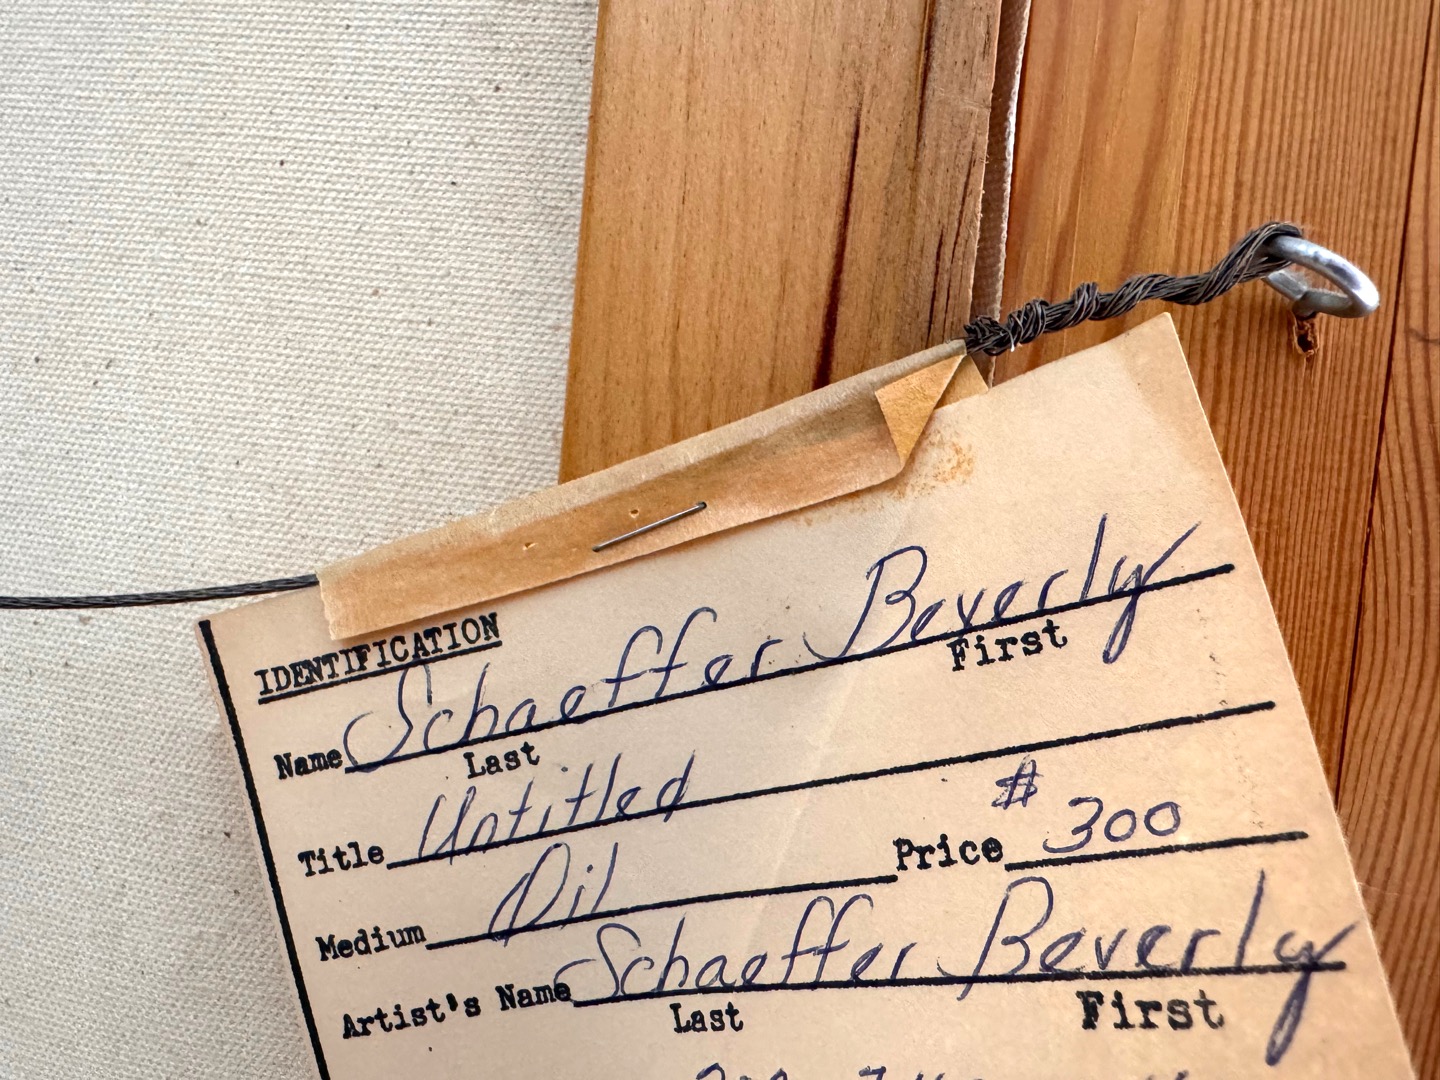 IDENTIFICATION
Name Schaeffer Beverly
Last First
Title Untitled
Medium Oil Price $300
Artist's Name Schaeffer Beverly
Last First